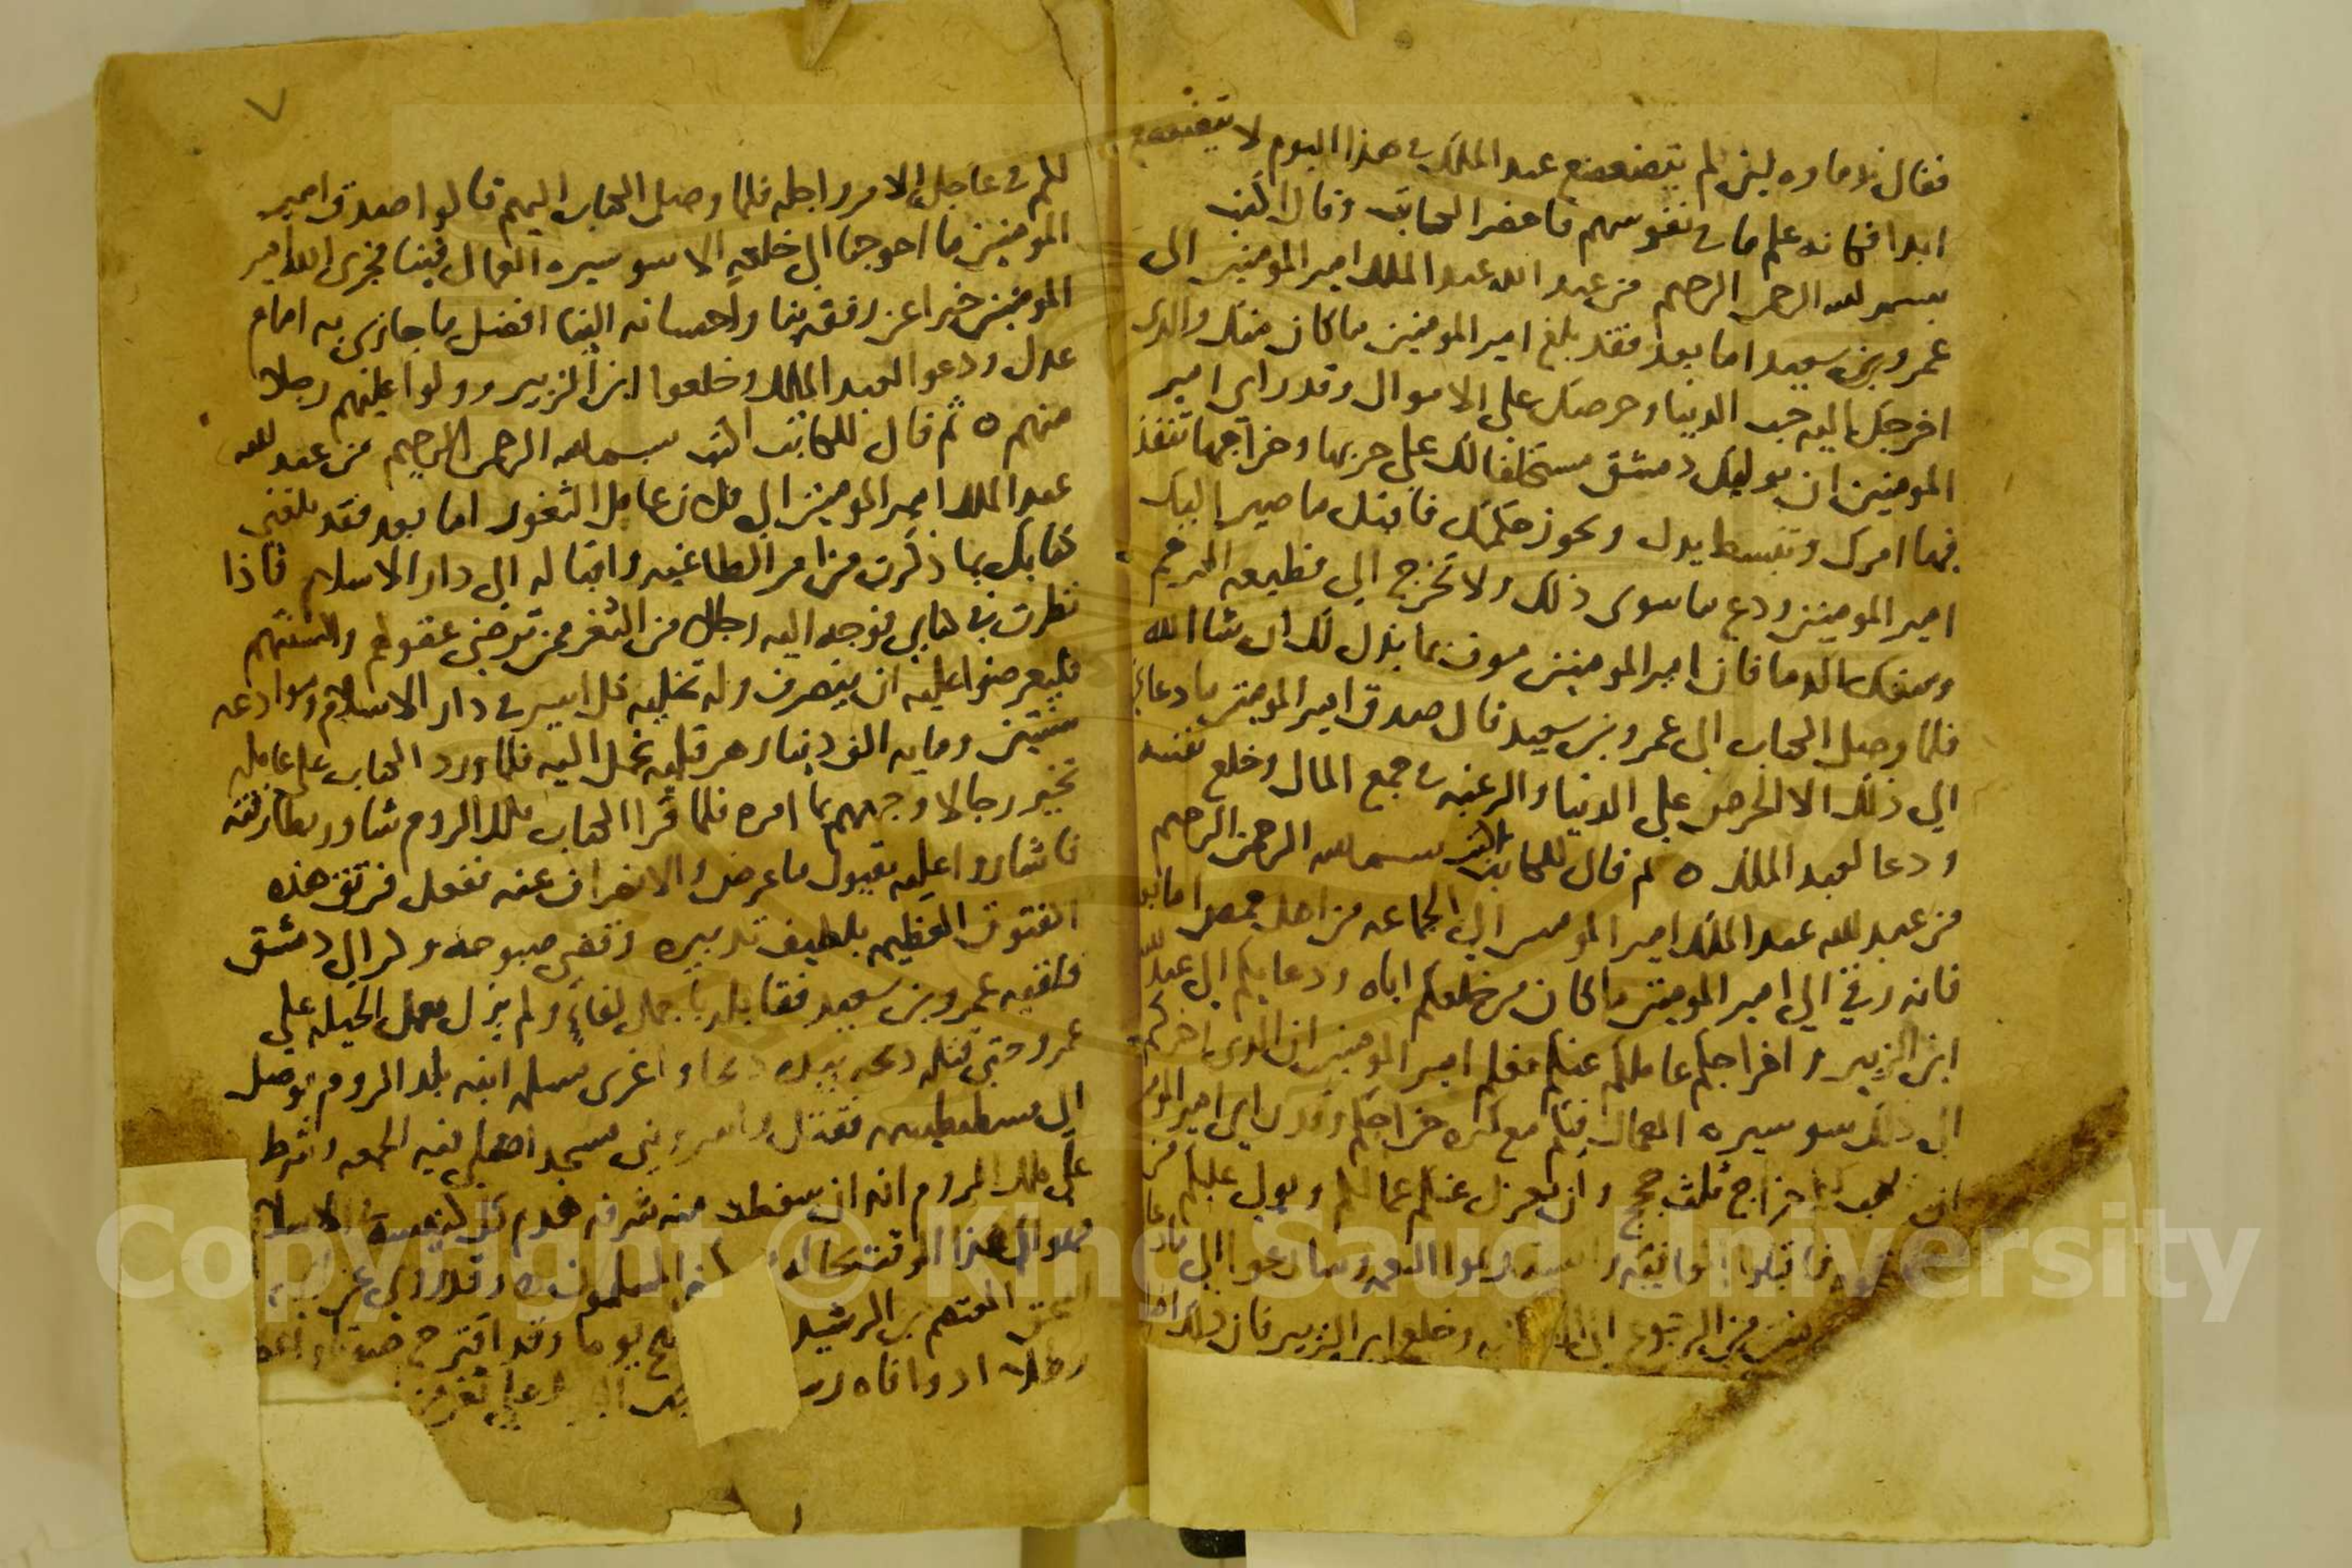 فقال ندماوه لين لم يتضعضع عبد الملك في هذا اليوم لا يتضعضع
ابدا فكانه علم ما في نفوسهم فاحضر الكاتب وقال اكتب
بسم الله الرحمن الرحيم من عبد الله عبد الملك امير المومنين الى
عمرو بن سعيد اما بعد فقد بلغ امير المومنين ما كان منك والذي
اخرجك اليه حب الدنيا وحرصك على الاموال وقد راى امير
المومنين ان يوليك دمشق مستخلفا لك على حربها وخراجها تنفذ
فيها امرك وتبسط يدك وتحوز فاقبل ما صير اليك
امير المومنين ودع ما سوى ذلك ولا تخرج الى قطيعه الرحم
وسفك الدما فان امير المومنين موف بما بذل لك ان شا الله
فلما وصل الكتاب الى عمرو بن سعيد قال صدق امير المومنين ما دعاني
الى ذلك الا الحرص على الدنيا والرغبه في جمع المال وخلع نفسه
ودعا لعبد الملك ٥ ثم قال للكاتب اكتب بسم الله الرحمن الرحيم
من عبد الله عبد الملك امير المومنين الى الجماعه من اهل حمص اما بعد
فانه رقي الى امير المومنين ما كان من خلعكم اياه ودعايكم الى عبد الله
ابن الزبير واخراجكم عاملكم عنكم فعلم امير المومنين ان الذي اخرجكم
الى ذلك سو سيره العمال فيكم مع كثره خراجكم وقد راى امير المومنين
ان خراج ثلث حجج وان يعزل عنكم عمالكم ويولي عليكم من
فاقبلوا النعمه وسارعوا الى ما دعا
من الرجوع الى وخلع ابن الزبير فان ذلك
لكم في عاجل الامر واجله فلما وصل الكتاب اليهم قالوا صدق امير
المومنين ما احوجنا الى خلعه الا سو سيره العمال فينا فجزى الله امير
المومنين خيرا عن رفقه بنا واحسانه الينا افضل ما جازى به امام
عدل ودعوا لعبد الملك وخلعوا ابن الزبير وولوا عليهم رجلا
منهم ٥ ثم قال للكاتب اكتب بسم الله الرحمن الرحيم من عبد الله
عبد الملك امير المومنين الى فلان عامل الثغور اما بعد فقد بلغني
كتابك بما ذكرت من امر الطاغيه واقباله الى دار الاسلام فاذا
نظرت في كتابي فوجه اليه رجالا من الثغر ممن ترضى عقولهم والسنتهم
فليعرضوا عليه ان ينصرف وله تخليه كل اسير في دار الاسلام وموادعه
سنتين ومايه الف دينار هرقليه تحمل اليه فلما ورد الكتاب على عامله
تخير رجالا وجههم بما امره فلما قرا الكتاب ملك الروم شاور بطارقته
فاشاروا عليه بقبول ما عرض والانصراف عنه ففعل فرتق هذه
الفتوق العظيمه بلطيف تدبيره وقضى صبوحه وكر الى دمشق
فلقيه عمرو بن سعيد فقابله باجمل لقاء ولم يزل يعمل الحيله على
عمرو حتى قتله ذبحه بيده ذبحا واغزى مسلمه ابنه بلد الروم فوصل
الى قسطنطينيه فقتل واسر وبنى مسجدا صلى فيه الجمعه وشرط
على ملك الروم انه ان سقطت منه شرفه هدم كل كنيسه في الاسلام
فهو الى هذا الوقت المسلمون ٥ وقد روي عن
المعتصم بن الرشيد يوما وقد اقترح